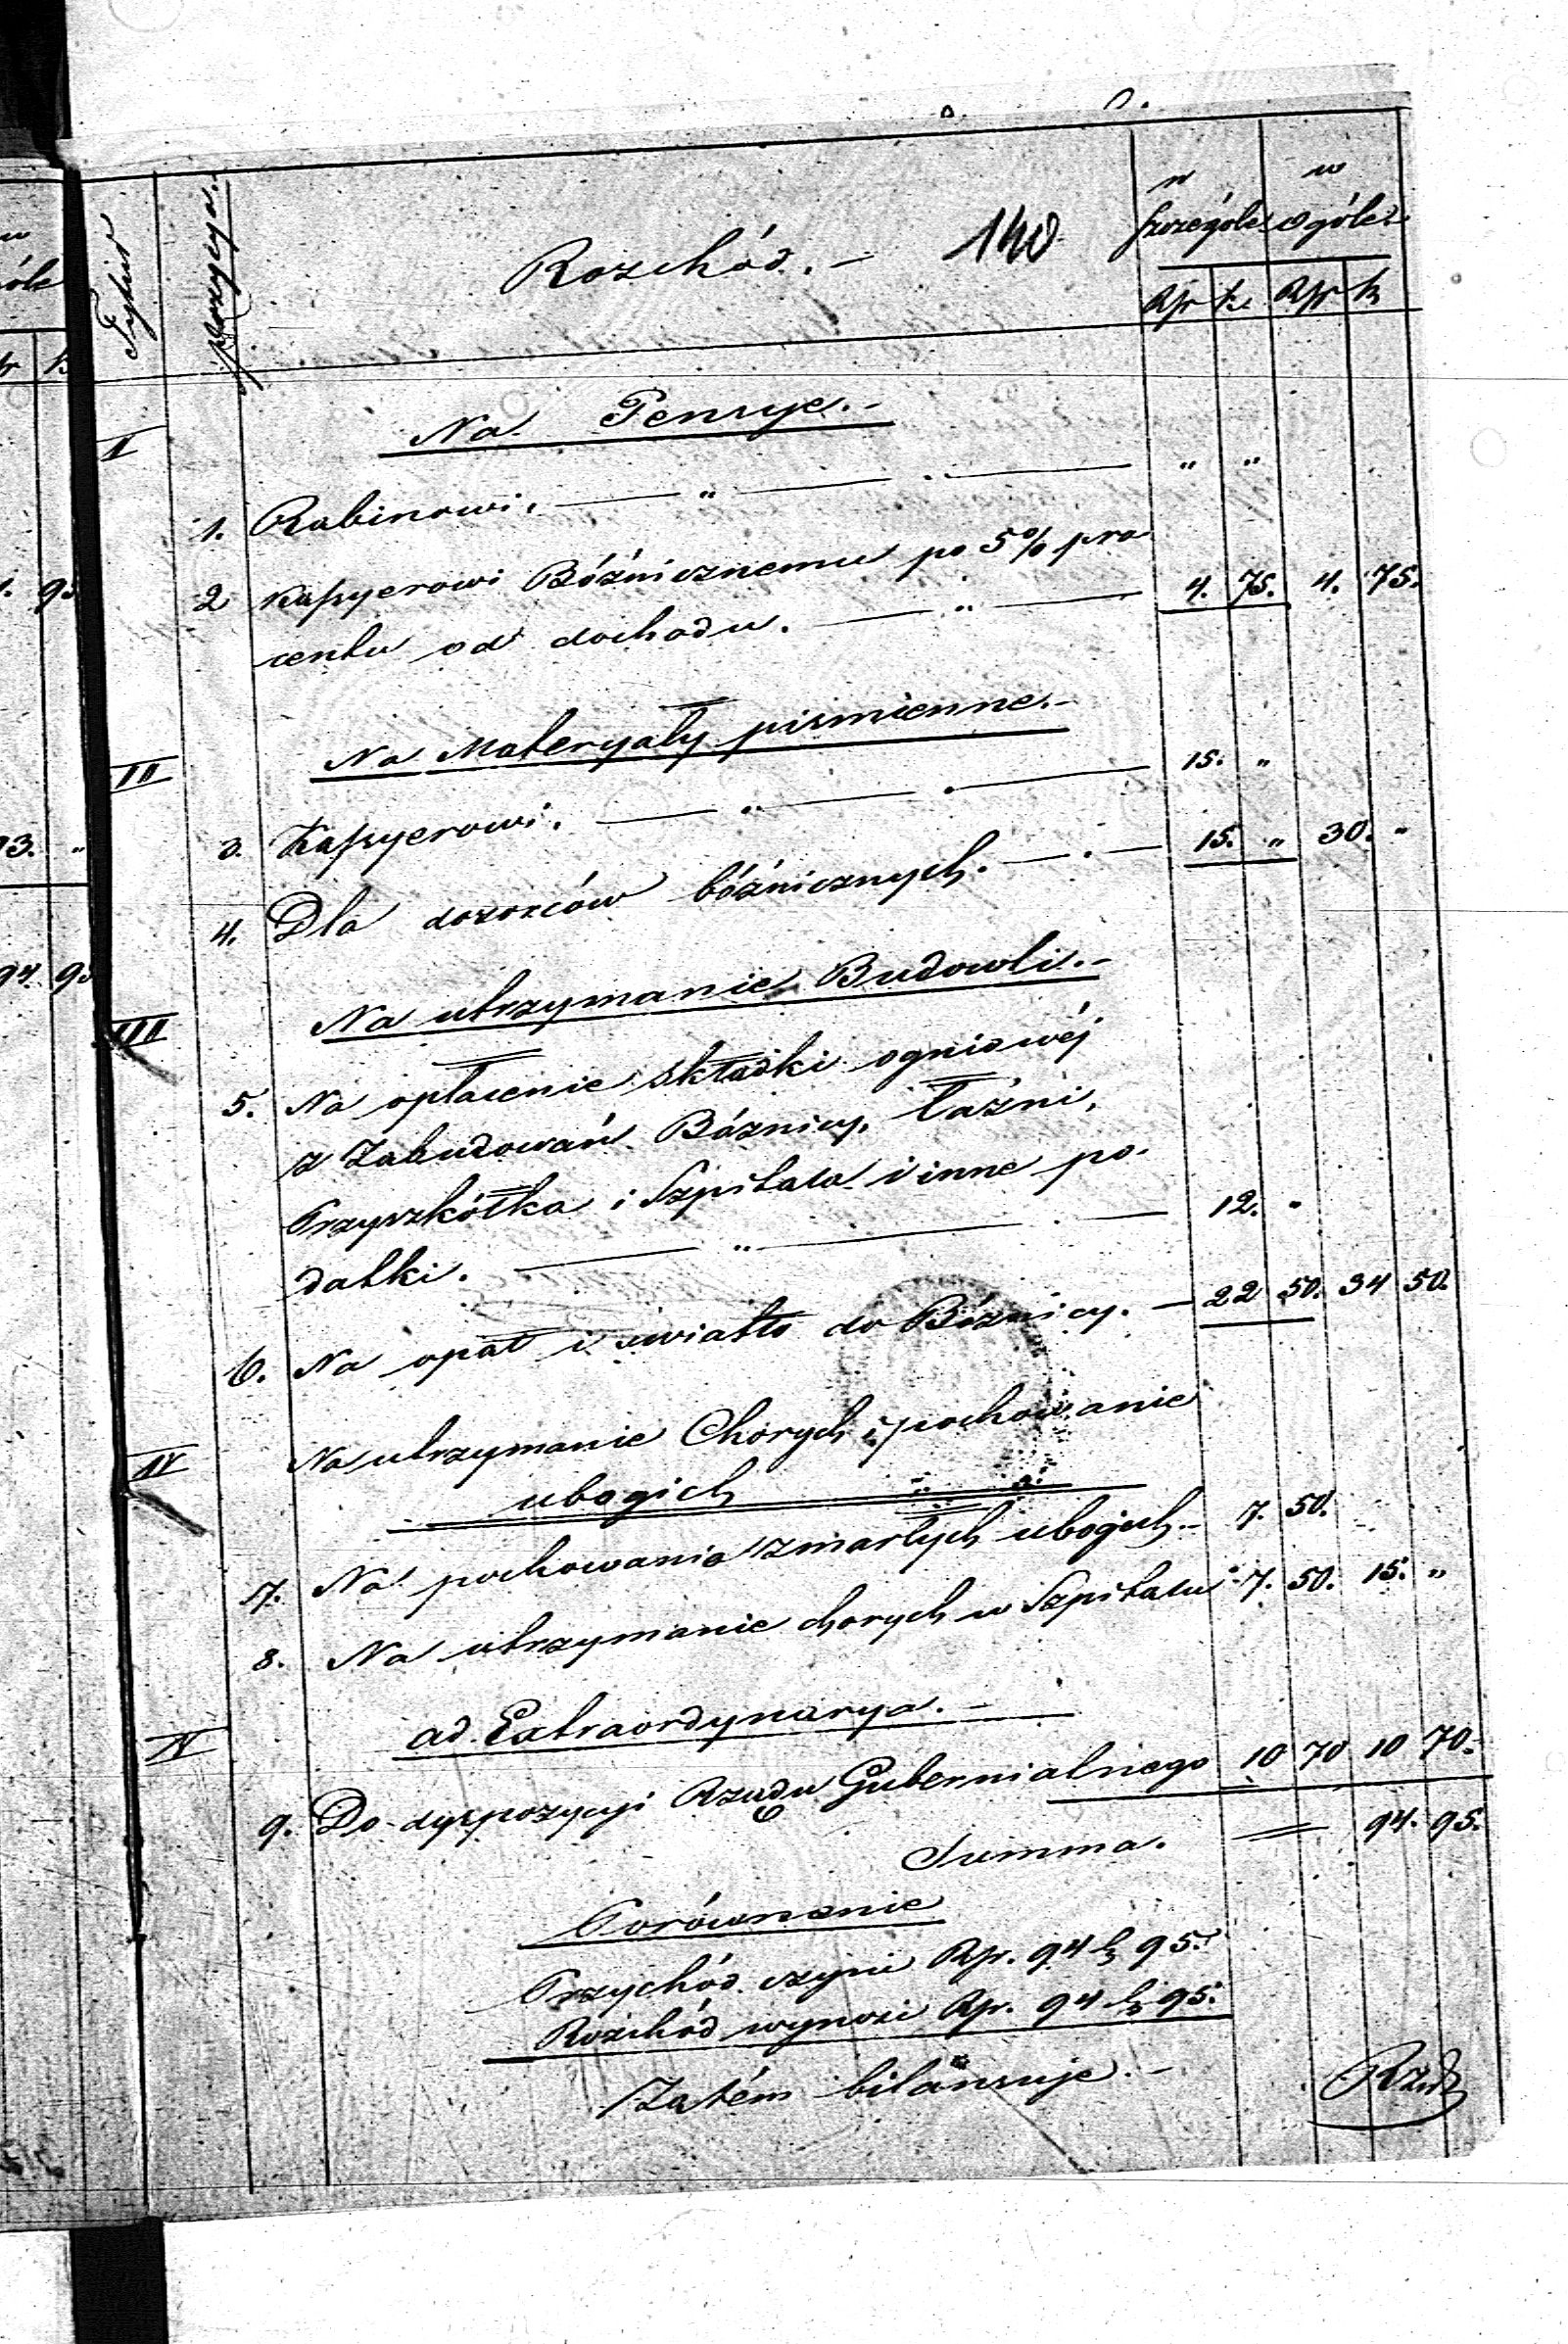 w w
Tytuł Pozycya. Rozchód. - 140 szczególe ogóle
Rsr k. Rsr k
I Na Pensye.-
1. Rabinowi. — " — . — " "
2 Kassyerowi Bóźnicznemu po 5% pro
centu od dochodu. — " — 4. 75. 4. 75.
II Na Materyały piśmienne.-
3. Kassyerowi. — " — . — 15. "
4. Dla dozorców bóźnicznych. — . — 15. " 30. "
III Na utrzymanie Budowli.-
5. Na opłacenie składki ogniowéj
z Zabudowań Bóźnicy, Łaźni,
Przyszkółka i Szpitala i inne po-
datki. — " — . — 12. "
6. Na opał i światło do Bóźnicy. — 22 50. 34 50.
IV Na utrzymanie Chorych i pochowanie
ubogich
7. Na pochowania zmarłych ubogich.- 7. 50.
8. Na utrzymanie chorych w Szpitalu - 7. 50. 15. "
IV ad Extraordynarya. -
9. Do dyspozycyi Rządu Gubernialnego 10 70 10 70.
Summa. = 94. 95.
Porównanie
Przychód czyni Rsr. 94 k 95.
Rozchód wynosi Rsr. 94 k 95.
Zatém bilansuje. -